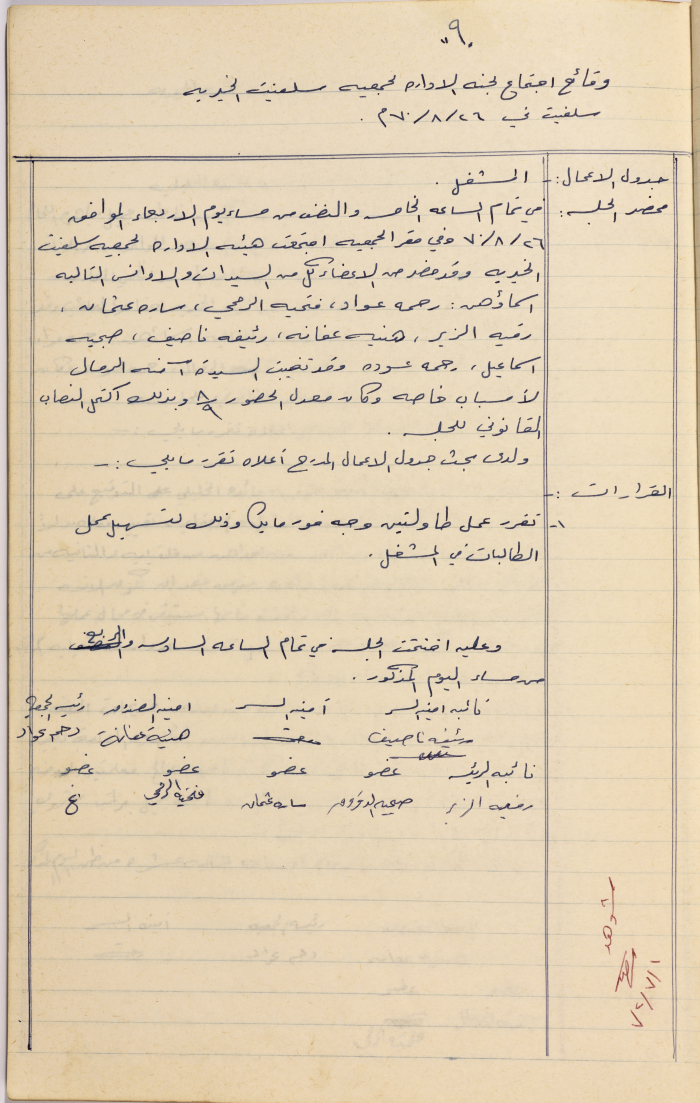 ٩
وقائع اجتماع لجنه الاداره لجمعيه سلفيت الخيريه
سلفيت في ٢٦/٨/٧٠م.
جدول الاعمال :- المشغل.
محضر الجلسه : في تمام الساعه الخامسه والنصف من مساء يوم الاربعاء الموافق
٢٦/٨/٧٠ وفي مقر الجمعيه اجتمعت هيئه الاداره لجمعيه سلفيت
الخيريه وقد حضر من الاعضاء كل من السيدات والاوانس التاليه
اسماؤهن : رحمه عواد، فتحيه الرمحي، ساره عثمان،
رقيه الزير، هنيه عفانه، رئيفه ناصيف، صبحيه
اسماعيل، رحمه عوده وقد تغيبت السيدة آمنه الرمال
لأسباب خاصه وكان معدل الحضور ٨/٩ وبذلك اكتمل النصاب
القانوني للجلسه.
ولدى بحث جدول الاعمال المدرج أعلاه تقرر ما يلي :-
القرارات :-
١- تقرر عمل طاولتين وجه فورمايكا وذلك لتسهيل عمل
الطالبات في المشغل.
وعليه اختتمت الجلسه في تمام الساعه السادسه والربع
من مساء اليوم المذكور.
رئيسه الجمعيه امينه الصندوق أمينه السر نائبه امينه السر
رحمه عواد هنية عفانة رئيفه ناصيف
نائبه الرئيسه عضو عضو عضو عضو
رقيه الزير ساره عثمان فتحية الرمحي
شوهد
١/٧/٧٢